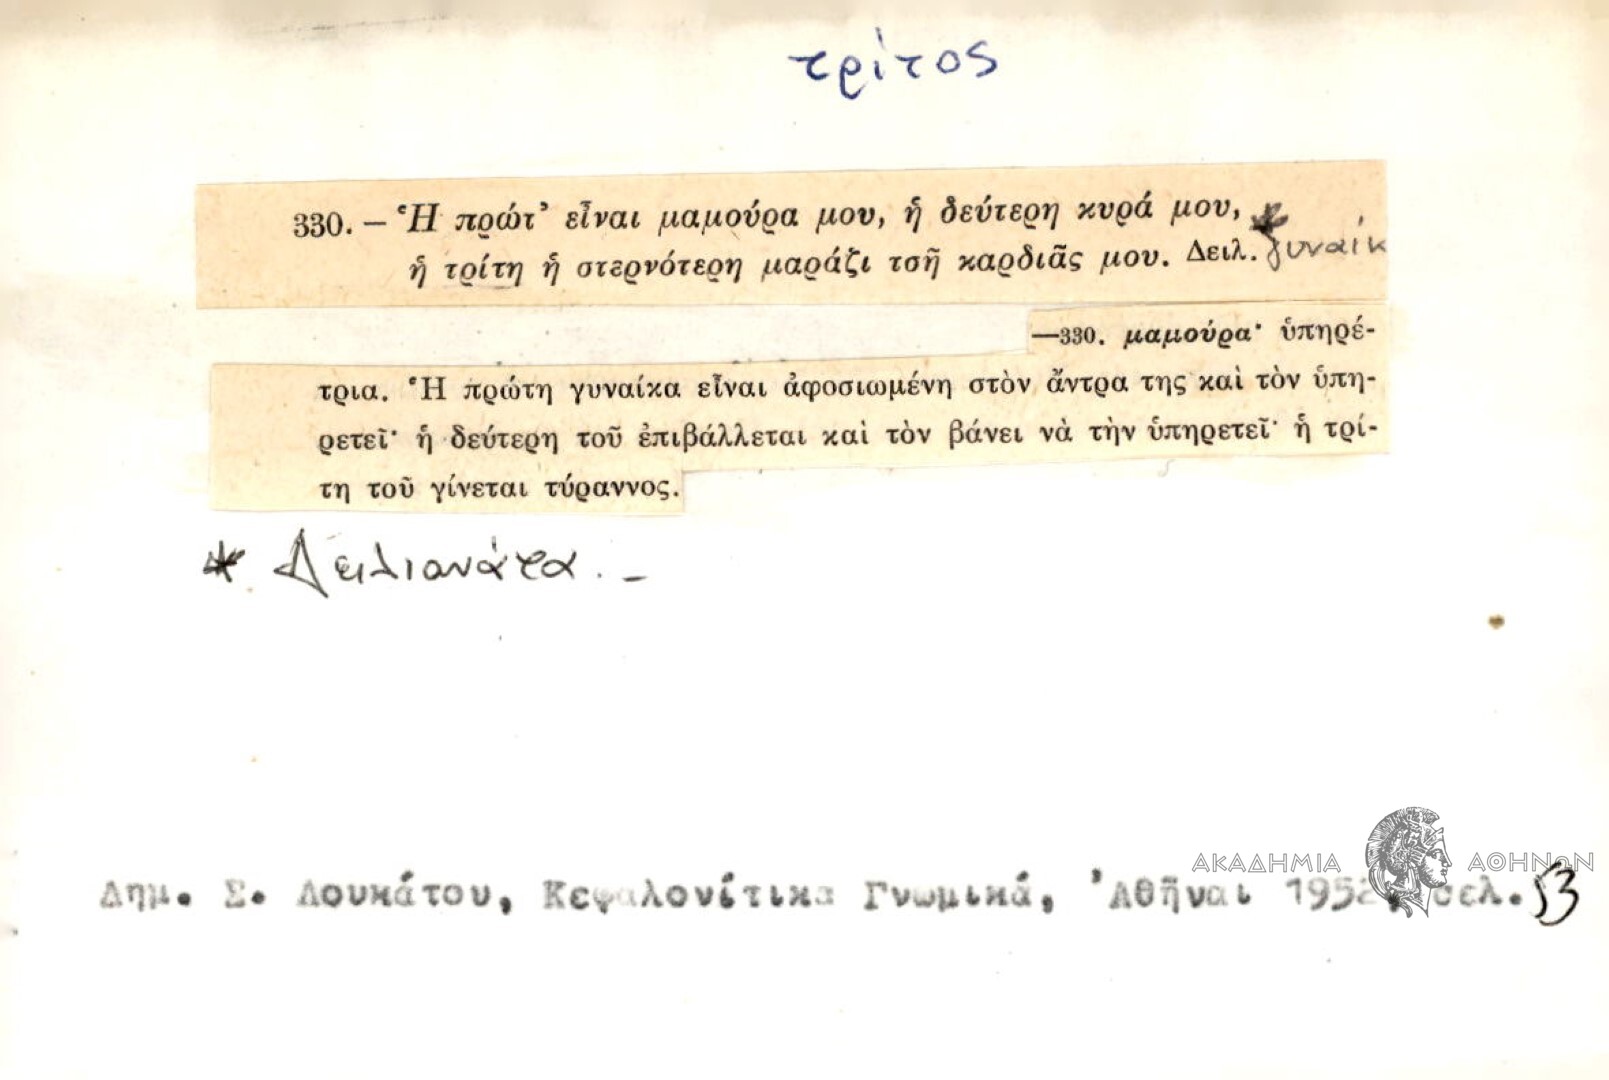 τρίτος
330. — Ἡ πρώτ’ εἶναι μαμούρα μου, ἡ δεύτερη κυρά μου, *
ἡ τρίτη ἡ στερνότερη μαράζι τσῆ καρδιᾶς μου. Δειλ. γυναίκ
—330. μαμούρα· ὑπηρέ-
τρια. Ἡ πρώτη γυναίκα εἶναι ἀφοσιωμένη στὸν ἄντρα της καὶ τὸν ὑπη-
ρετεῖ· ἡ δεύτερη τοῦ ἐπιβάλλεται καὶ τὸν βάνει νὰ τὴν ὑπηρετεῖ· ἡ τρί-
τη τοῦ γίνεται τύραννος.
* Δειλιανάτα. –
ΑΚΑΔΗΜΙΑ ΑΘΗΝΩΝ
Δημ. Σ. Λουκάτου, Κεφαλονίτικα Γνωμικά, Ἀθῆναι 1952, σελ. 53